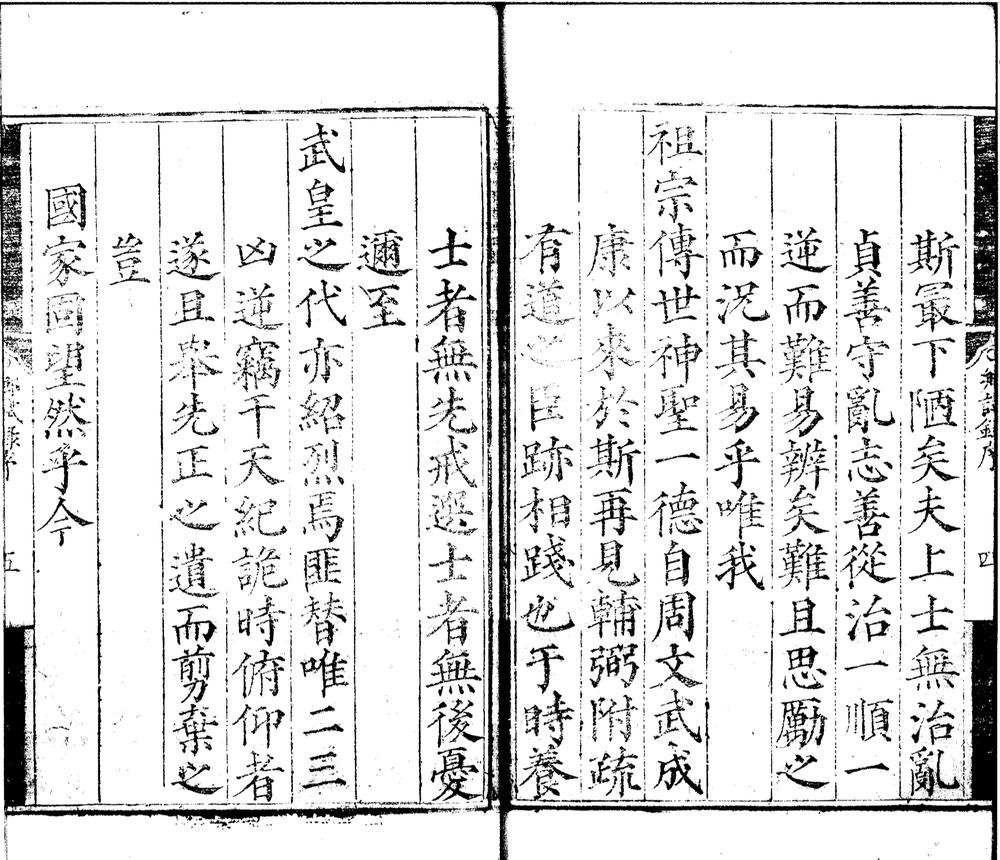 斯最下陋矣夫上士無治亂
貞善守亂志善從治一順一
逆而難易辨矣難且思勵之
而況其易乎唯我
祖宗傳世神聖一德自周文武成
康以來於斯再見輔弼附疏
有道之臣跡相踐也于時養
士者無先戒選士者無後憂
邇至
武皇之代亦紹烈焉匪替唯二三
凶逆竊干天紀詭時俯仰者
遂且舉先正之遺而剪棄之
豈
國家罔望然乎今
四
五